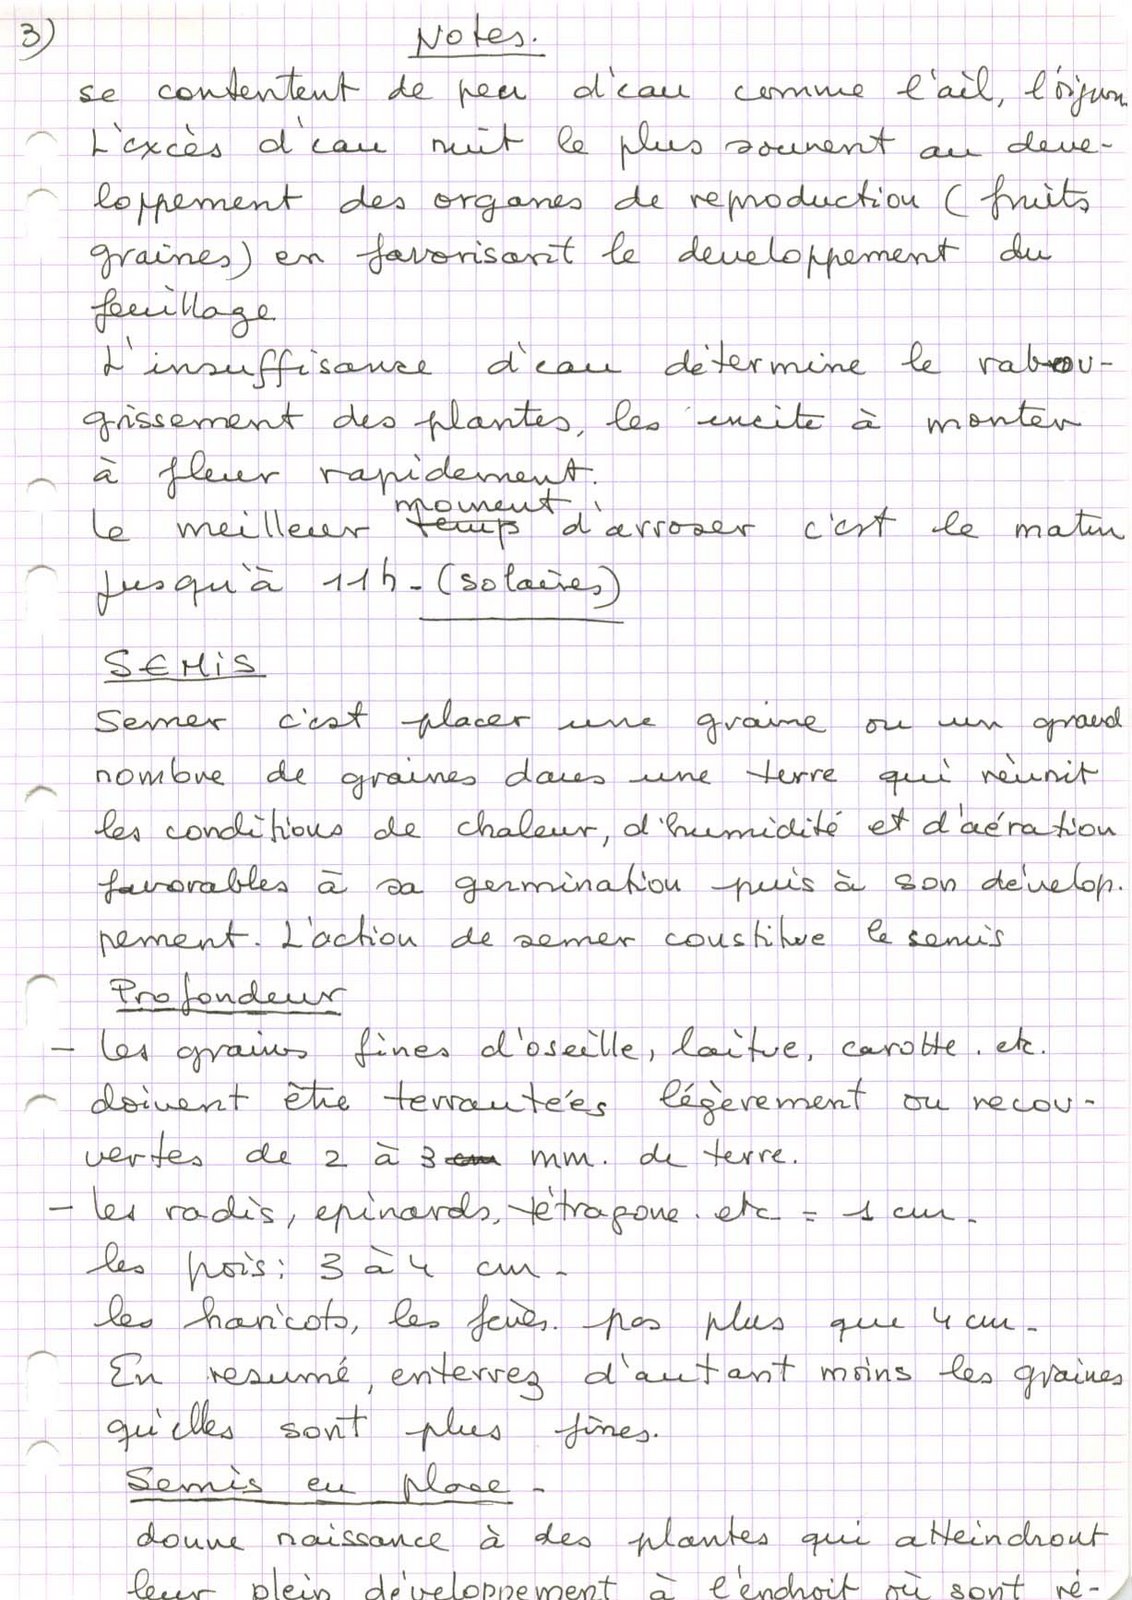 3) Notes.
se contentent de peu d'eau comme l'ail, l'oignon
L'excès d'eau nuit le plus souvent au deve-
loppement des organes de reproduction (fruits
graines) en favorisant le developpement du
feuillage
L'insuffisance d'eau détermine le rabou-
grissement des plantes, les incite à monter
à fleur rapidement.
moment
le meilleur temp d'arroser c'est le matin
jusqu'à 11h - (solaires)
SEMIS
Semer c'est placer une graine ou un grand
nombre de graines dans une terre qui réunit
les conditions de chaleur, d'humidité et d'aération
favorables à sa germination puis à son dévelop.
pement. L'action de semer constitue le semis
Profondeur
- les graines fines d'oseille, laitue, carotte. etc.
doivent être terrautées légèrement ou recou-
vertes de 2 à 3 cm mm. de terre.
- les radis, epinards, tétragone. etc = 1 cm.
les pois: 3 à 4 cm -
les haricots, les fèves. pas plus que 4 cm -
En resumé, enterrez d'autant moins les graines
qu'elles sont plus fines.
Semis en place -
donne naissance à des plantes qui atteindront
leur plein développement à l'endroit où sont ré-